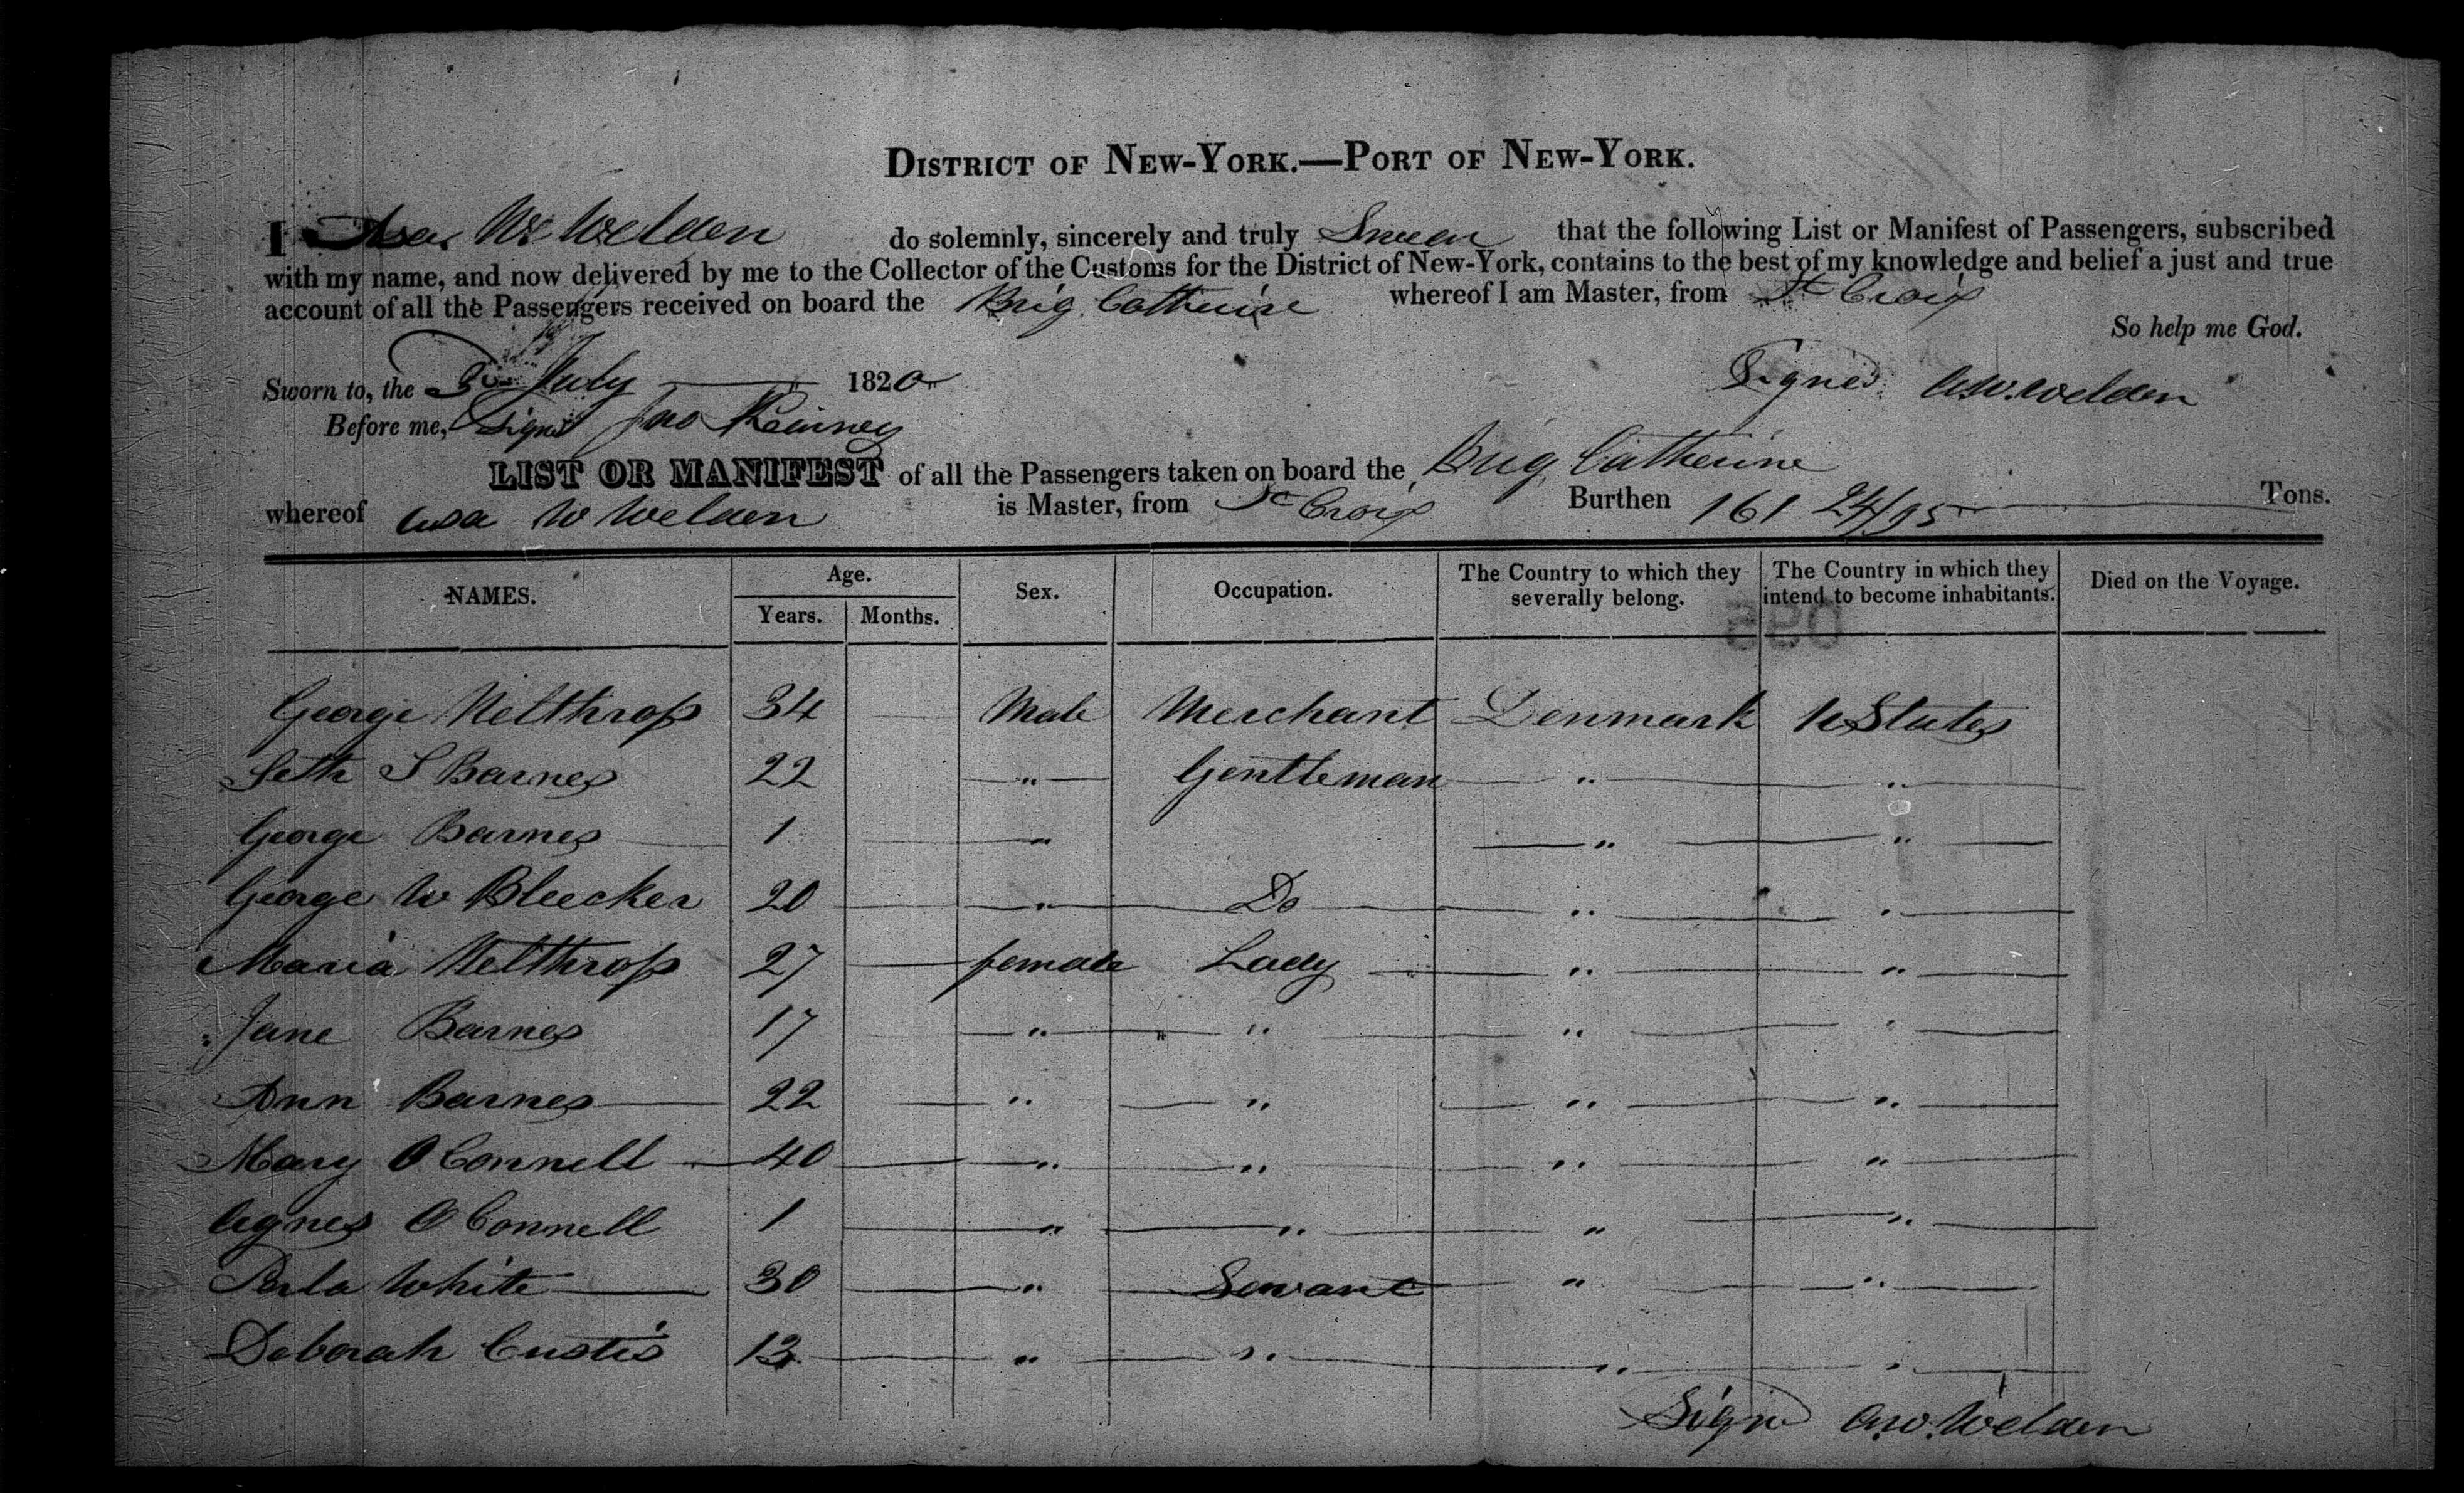 DISTRICT OF NEW-YORK.—PORT OF NEW-YORK.
I Asa W. Welden do solemnly, sincerely and truly Swear that the following List or Manifest of Passengers, subscribed
with my name, and now delivered by me to the Collector of the Customs for the District of New-York, contains to the best of my knowledge and belief a just and true
account of all the Passengers received on board the Brig Catherine whereof I am Master, from St Croix
So help me God.
Sworn to, the 3rd July 1820 Signed A.W. Welden
Before me, Signd Jno
LIST OR MANIFEST of all the Passengers taken on board the Brig Catherine
whereof Asa W Welden is Master, from St Croix Burthen 161 24/95 Tons.
NAMES. Age. Years. Months. Sex. Occupation. The Country to which they severally belong. The Country in which they intend to become inhabitants. Died on the Voyage.
George Nelthrop 34 Male Merchant Denmark U States
Seth S Barnes 22 " Gentleman " "
George Barnes 1 " " "
George W Bleecker 20 " Do " "
Maria Nelthrop 27 female Lady " "
Jane Barnes 17 " " " "
Ann Barnes 22 " " " "
Mary O Connell 40 " " " "
Agnes O Connell 1 " " " "
Perla White 30 " Servant " "
Deborah Custis 13 " " " "
Signd A.W. Welden